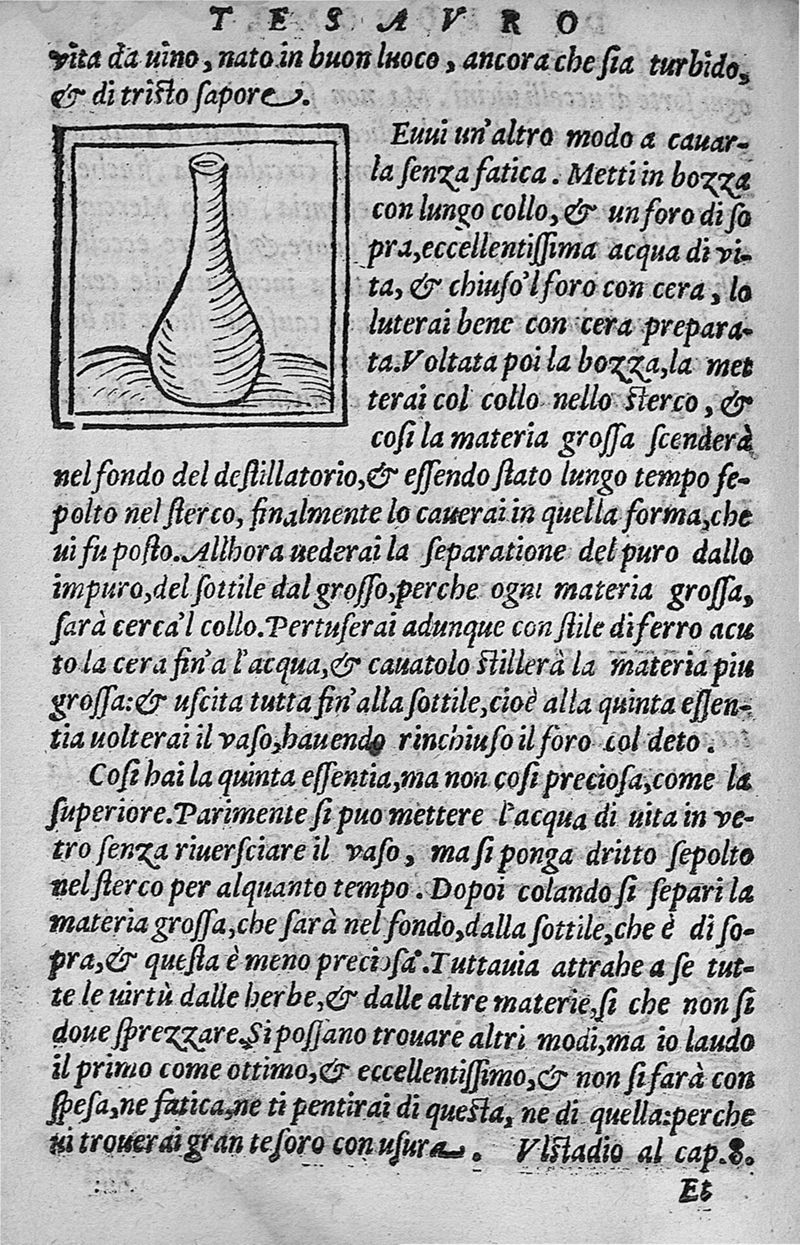 TESAVRO
vita da uino, nato in buon luoco, ancora che ſia turbido,
& di triſto ſapore.
Euui un'altro modo a cauar-
la ſenza fatica. Metti in bozza
con lungo collo, & un foro di ſo
pra, eccellentiſſima acqua di vi-
ta, & chiuſo'l foro con cera, lo
luterai bene con cera prepara-
ta. Voltata poi la bozza, la met
terai col collo nello ſterco, &
coſi la materia groſſa ſcenderà
nel fondo del deſtillatorio, & eſſendo ſtato lungo tempo ſe-
polto nel ſterco, finalmente lo cauerai in quella forma, che
ui fu poſto. Allhora uederai la ſeparatione del puro dallo
impuro, del ſottile dal groſſo, perche ogni materia groſſa,
ſarà cerca'l collo. Pertuſerai adunque con ſtile di ferro acu
to la cera fin'a l'acqua, & cauatolo ſtillerà la materia piu
groſſa: & uſcita tutta fin'alla ſottile, cioè alla quinta eſſen-
tia uolterai il vaſo, hauendo rinchiuſo il foro col deto.
Coſi hai la quinta eſſentia, ma non coſi precioſa, come la
ſuperiore. Parimente ſi puo mettere l'acqua di uita in ve-
tro ſenza riuerſciare il vaſo, ma ſi ponga dritto ſepolto
nel ſterco per alquanto tempo. Dopoi colando ſi ſepari la
materia groſſa, che ſarà nel fondo, dalla ſottile, che è di ſo-
pra, & queſta è meno precioſa. Tuttauia attrahe a ſe tut-
te le uirtù dalle herbe, & dalle altre materie, ſi che non ſi
doue ſprezzare. Si poſſano trouare altri modi, ma io laudo
il primo come ottimo, & eccellentiſſimo, & non ſi farà con
ſpeſa, ne fatica, ne ti pentirai di queſta, ne di quella: perche
ui trouerai gran teſoro con uſura. Vlſtadio al cap. 8.
Et